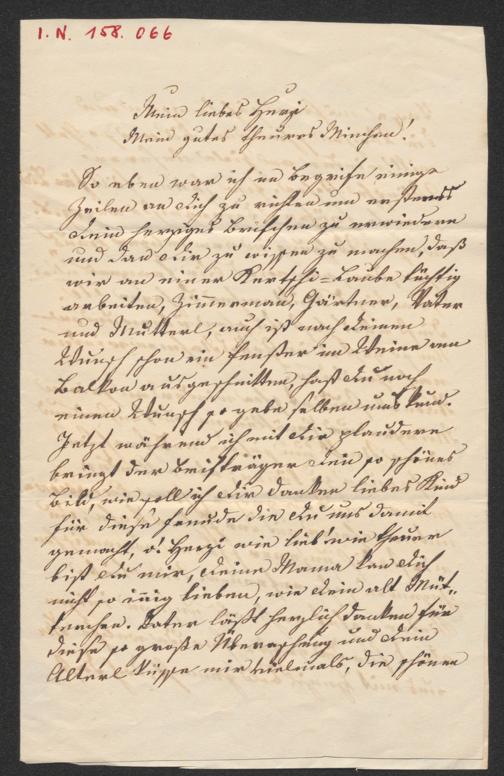 I. N. 158.066
Mein liebes Herzi
Mein gutes theures Minchen!
So eben war ich im Begrife einige
Zeilen an dich zu richten um erstens
dein herziges Briefchen zu erwiedern
und dan dir zu wissen zu machen, daß
wir an einer Kertschi-Laube tüchtig
arbeiten, Zimmerman, Gärtner, Vater
und Mutterl, auch ist nach deinen
Wunsch schon ein Fenster im Weine am
Balkon ausgeschnitten, hast du noch
einen Wunsch so gebe selben uns kund.
Jetzt während ich mit dir plaudere
bringt der Briefträger dein so schönes
Bild, wie soll ich dir danken liebes Kind
für diese Freude die du uns damit
gemacht, o! Herzi wie lieb wie theuer
bist du mir, deine Mama kan dich
nicht so inig lieben, wie dein alt Müt-
terchen. Vater läßt herzlich danken für
diese so große Überraschung und dein
Alterl küsse mir vielmals, die schönen